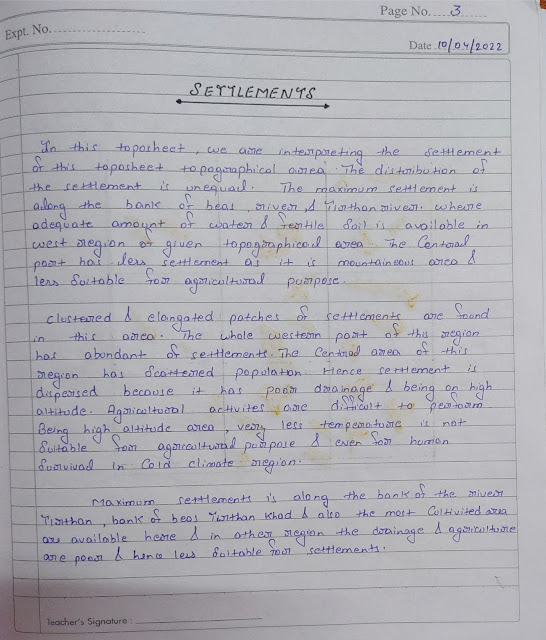 Page No. 3
Expt. No.
Date 10/04/2022
SETTLEMENTS
In this toposheet, we are interpreting the settlement
of this toposheet topographical area. The distribution of
the settlement is unequal. The maximum settlement is
along the bank of beas, river & Tirthan river. where
adequate amount of water & fertile Soil is available in
west region of given topographical area The Central
part has less settlement as it is mountaineous area &
less Suitable for agricultural purpose.
Clustered & elongated patches of settlements are found
in this area. The whole western part of this region
has abondant of settlements. The Central area of this
region has Scattered population Hence settlement is
dispersed because it has poor drainage & being on high
altitude. Agricultural activites are difficult to perform
Being high altitude area, very less temperature is not
Suitable for agricultural purpose & even for human
Survival in Cold climate region.
Maximum settlements is along the bank of the river
Tirthan, bank of beas Tirthan Khad & also the most Cultivited area
are available here & in other region the drainage & agriculture
are poor & hence less Suitable for settlements.
Teacher's Signature :